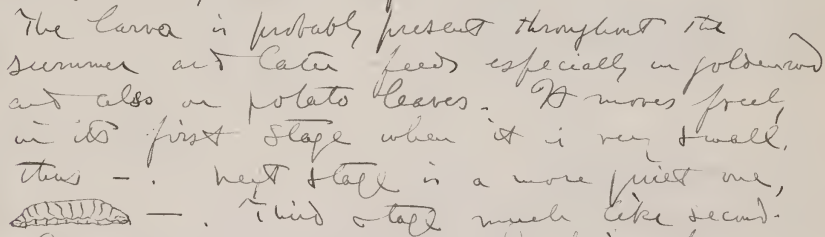 The larva is probably present throughout the
summer and later feeds especially on goldenrod
and also on potato leaves. It moves freely
in its first stage when it is very small,
thus — . Next stage is a more quiet one,
— . Third stage much like second.